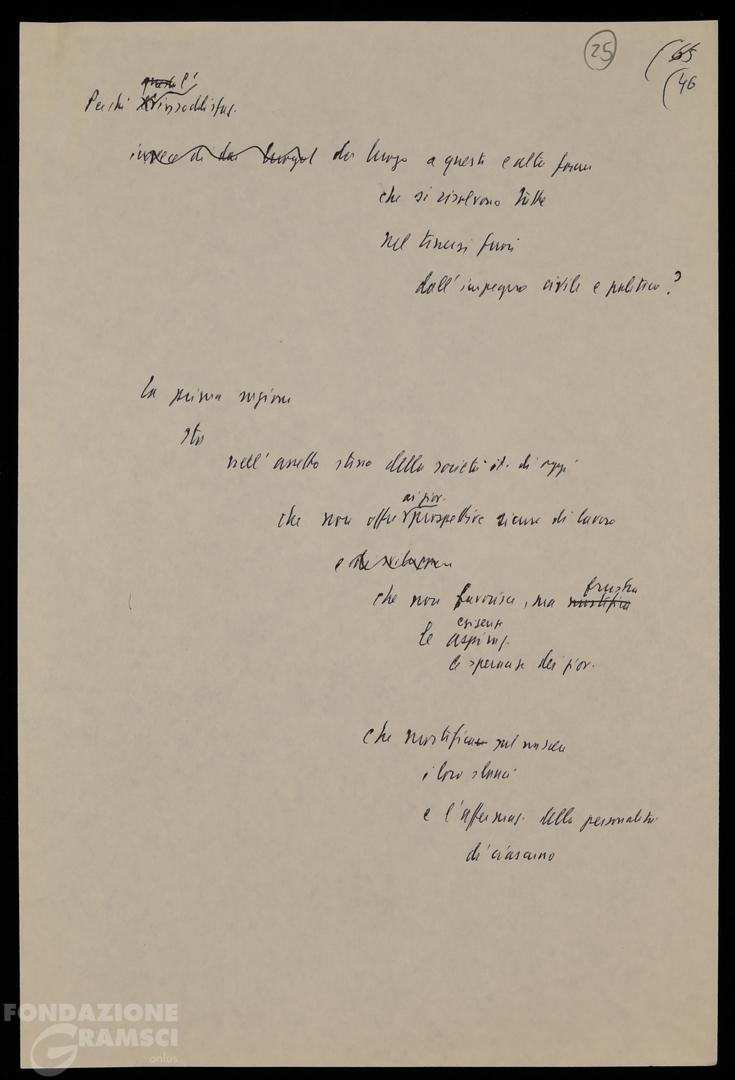 25
(65
(46
~~questa~~ l'
Perché insoddisfaz.
~~invece di dar luogo~~ dà luogo a queste e altre forme
che si risolvono tutte
nel tenersi fuori
dall'impegno civile e politico?
La prima ragione
sta
nell'assetto stesso della società it. di oggi
ai giov.
che non offre prospettive sicure di lavoro
e
che non favorisce, ma frustra ~~mortifica~~
esigenze
le aspiraz.
le speranze dei giov.
che mortifica sul nascere
i loro slanci
e l'affermaz. della personalità
di ciascuno
FONDAZIONE
GRAMSCI
onlus